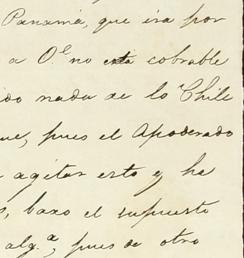 Panamá, que irá por
a O.e no está cobrable
do nada de lo Chile
ue, pues el Apoderado
agitar esto y ha
s, baxo el supuesto
alg.a, pues de otro